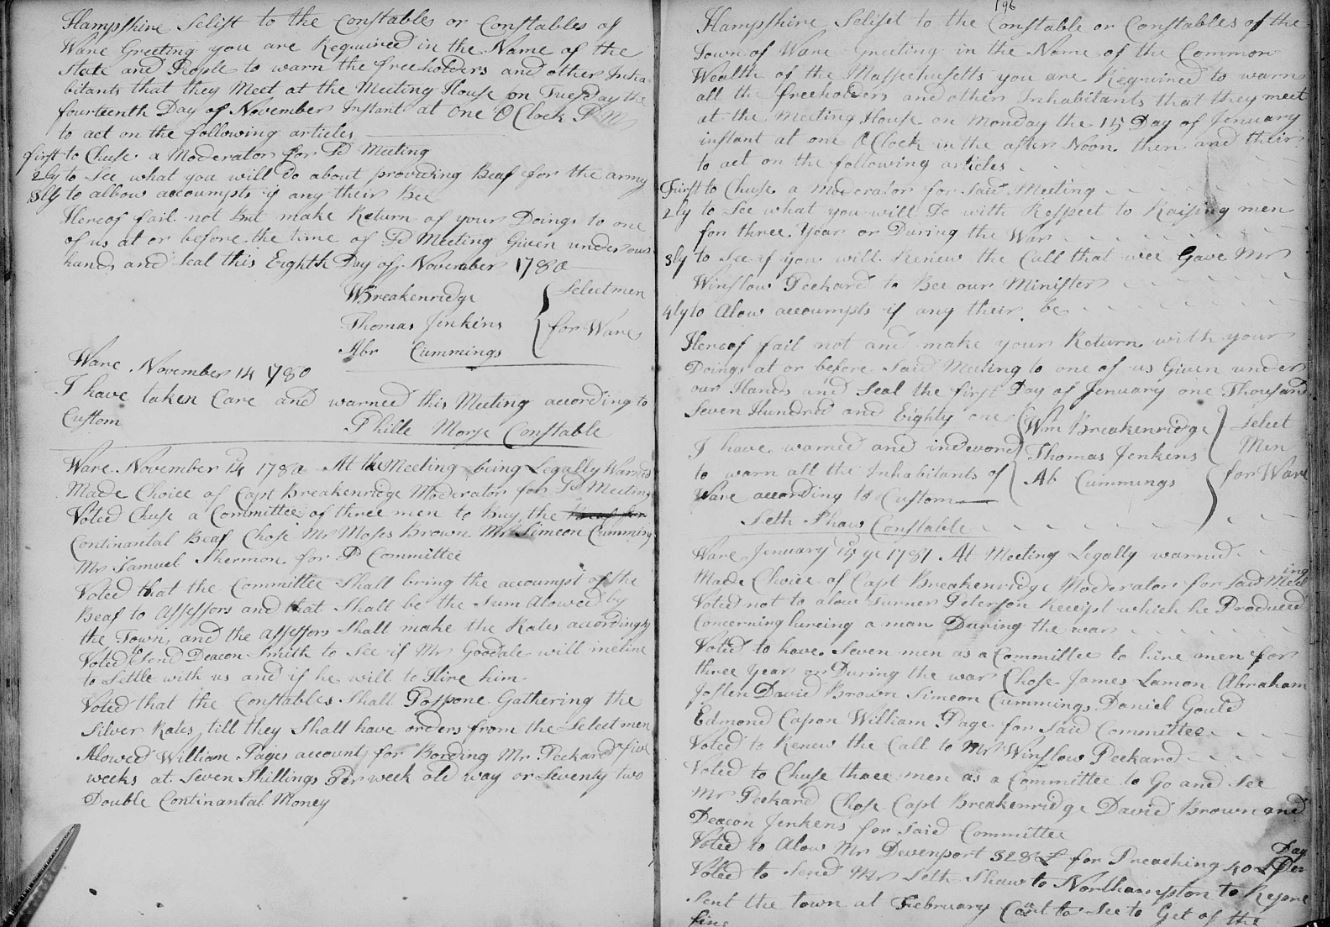 Hampshire Selist to the Constables or Constables of
Ware Greeting you are Required in the Name of the
State and People to warn the freeholders and other Inha
bitants that they Meet at the Meeting House on Tuesday the
fourteenth Day of November Instant at one O Clock P M
to act on the following articles
first to Chuse a Moderator for Sd Meeting
2ly to See what you will Do about providing Beaf for the army
3ly to allow accoumpts if any their Bee
Hereof fail not But make Return of your Doings to one
of us at or before the time of Sd Meeting Given under our
hands and Seal this Eighth Day of November 1780
WBreakenridge
Thomas Jenkins
Abr Cummings
Selectmen
for Ware
Ware November 14 1780
I have taken Care and warned this Meeting according to
Custom
Phille Morse Constable
Ware November 14 1780 At the Meeting being Legally Warned
Made Choice of Capt Breakenridge Moderator for Sd Meeting
Voted Chuse a Committee of three men to Buy the
Continantal Beaf Chose Mr Moses Brown Mr Simeon Cumming
Mr Samuel Shermon for Sd Committee
Voted that the Committee Shall bring the accoumpt of the
Beaf to Assessors and that Shall be the Sum Alowed by
the Town, and the Assessors Shall make the Rates accordingly
Voted to Send Deacon Smith to See if Mr Goodale will incline
to Settle with us and if he will to Hire him
Voted that the Constables Shall Postpone Gathering the
Silver Rates till they Shall have orders from the Selectmen
Alowed William Pages account for Bording Mr Peckard five
weeks at Seven Shillings Per week old way or Seventy two
Double Continantal Money
196
Hampshire Selist to the Constable or Constables of the
Town of Ware Greeting in the Name of the Common
Wealth of the Massechusetts you are Required to warn
all the freeholders and others Inhabitants that they meet
at the Meeting House on Monday the 15 Day of Jenuary
instant at one O Clock in the after Noon then and their
to act on the following articles
First to Chuse a Moderator for Said Meeting
2ly to See what you will Do with Respect to Raising men
for three Year or During the War
3ly to See if you will Renew the Call that wee Gave Mr
Winslow Peckard to Bee our Minister
4ly to Alow accoumpts if any their be
Hereof fail not and make your Return with your
Doings at or before Said Meeting to one of us Given under
our Hands and Seal the first Day of Jenuary one Thousand
Seven Hundred and Eighty one
Wm Breakenridge
Thomas Jenkens
Ab Cummings
Select
Men
for Ware
I have warned and indevord
to warn all the Inhabitants of
Ware according to Custom
Seth Shaw Constable
Ware Jenuary 15 ye 1781 At Meeting Legally warned
Made Choice of Capt Breakenridge Moderator for Said Meeting
Voted not to alow Turner Peterson Receipt which he Produced
Concerning hireing a man During the war
Voted to have Seven men as a Committee to hire men for
three year or During the war Chose James Lamon Abraham
Joslen David Brown Simeon Cummings Daniel Gould
Edmond Capon William Page for Said Committee
Voted to Renew the Call to Mr Winslow Peckard
Voted to Chuse three men as a Committee to Go and See
Mr Peckard Chose Capt Breakenridge David Brown and
Deacon Jenkens for Said Committee
Voted to Alow Mr Devenport 328 £ for Preaching 40 £ Per Day
Voted to Send Mr Seth Shaw to Northampton to Repre
Sent the town at February Cort to See to Get of the
fine